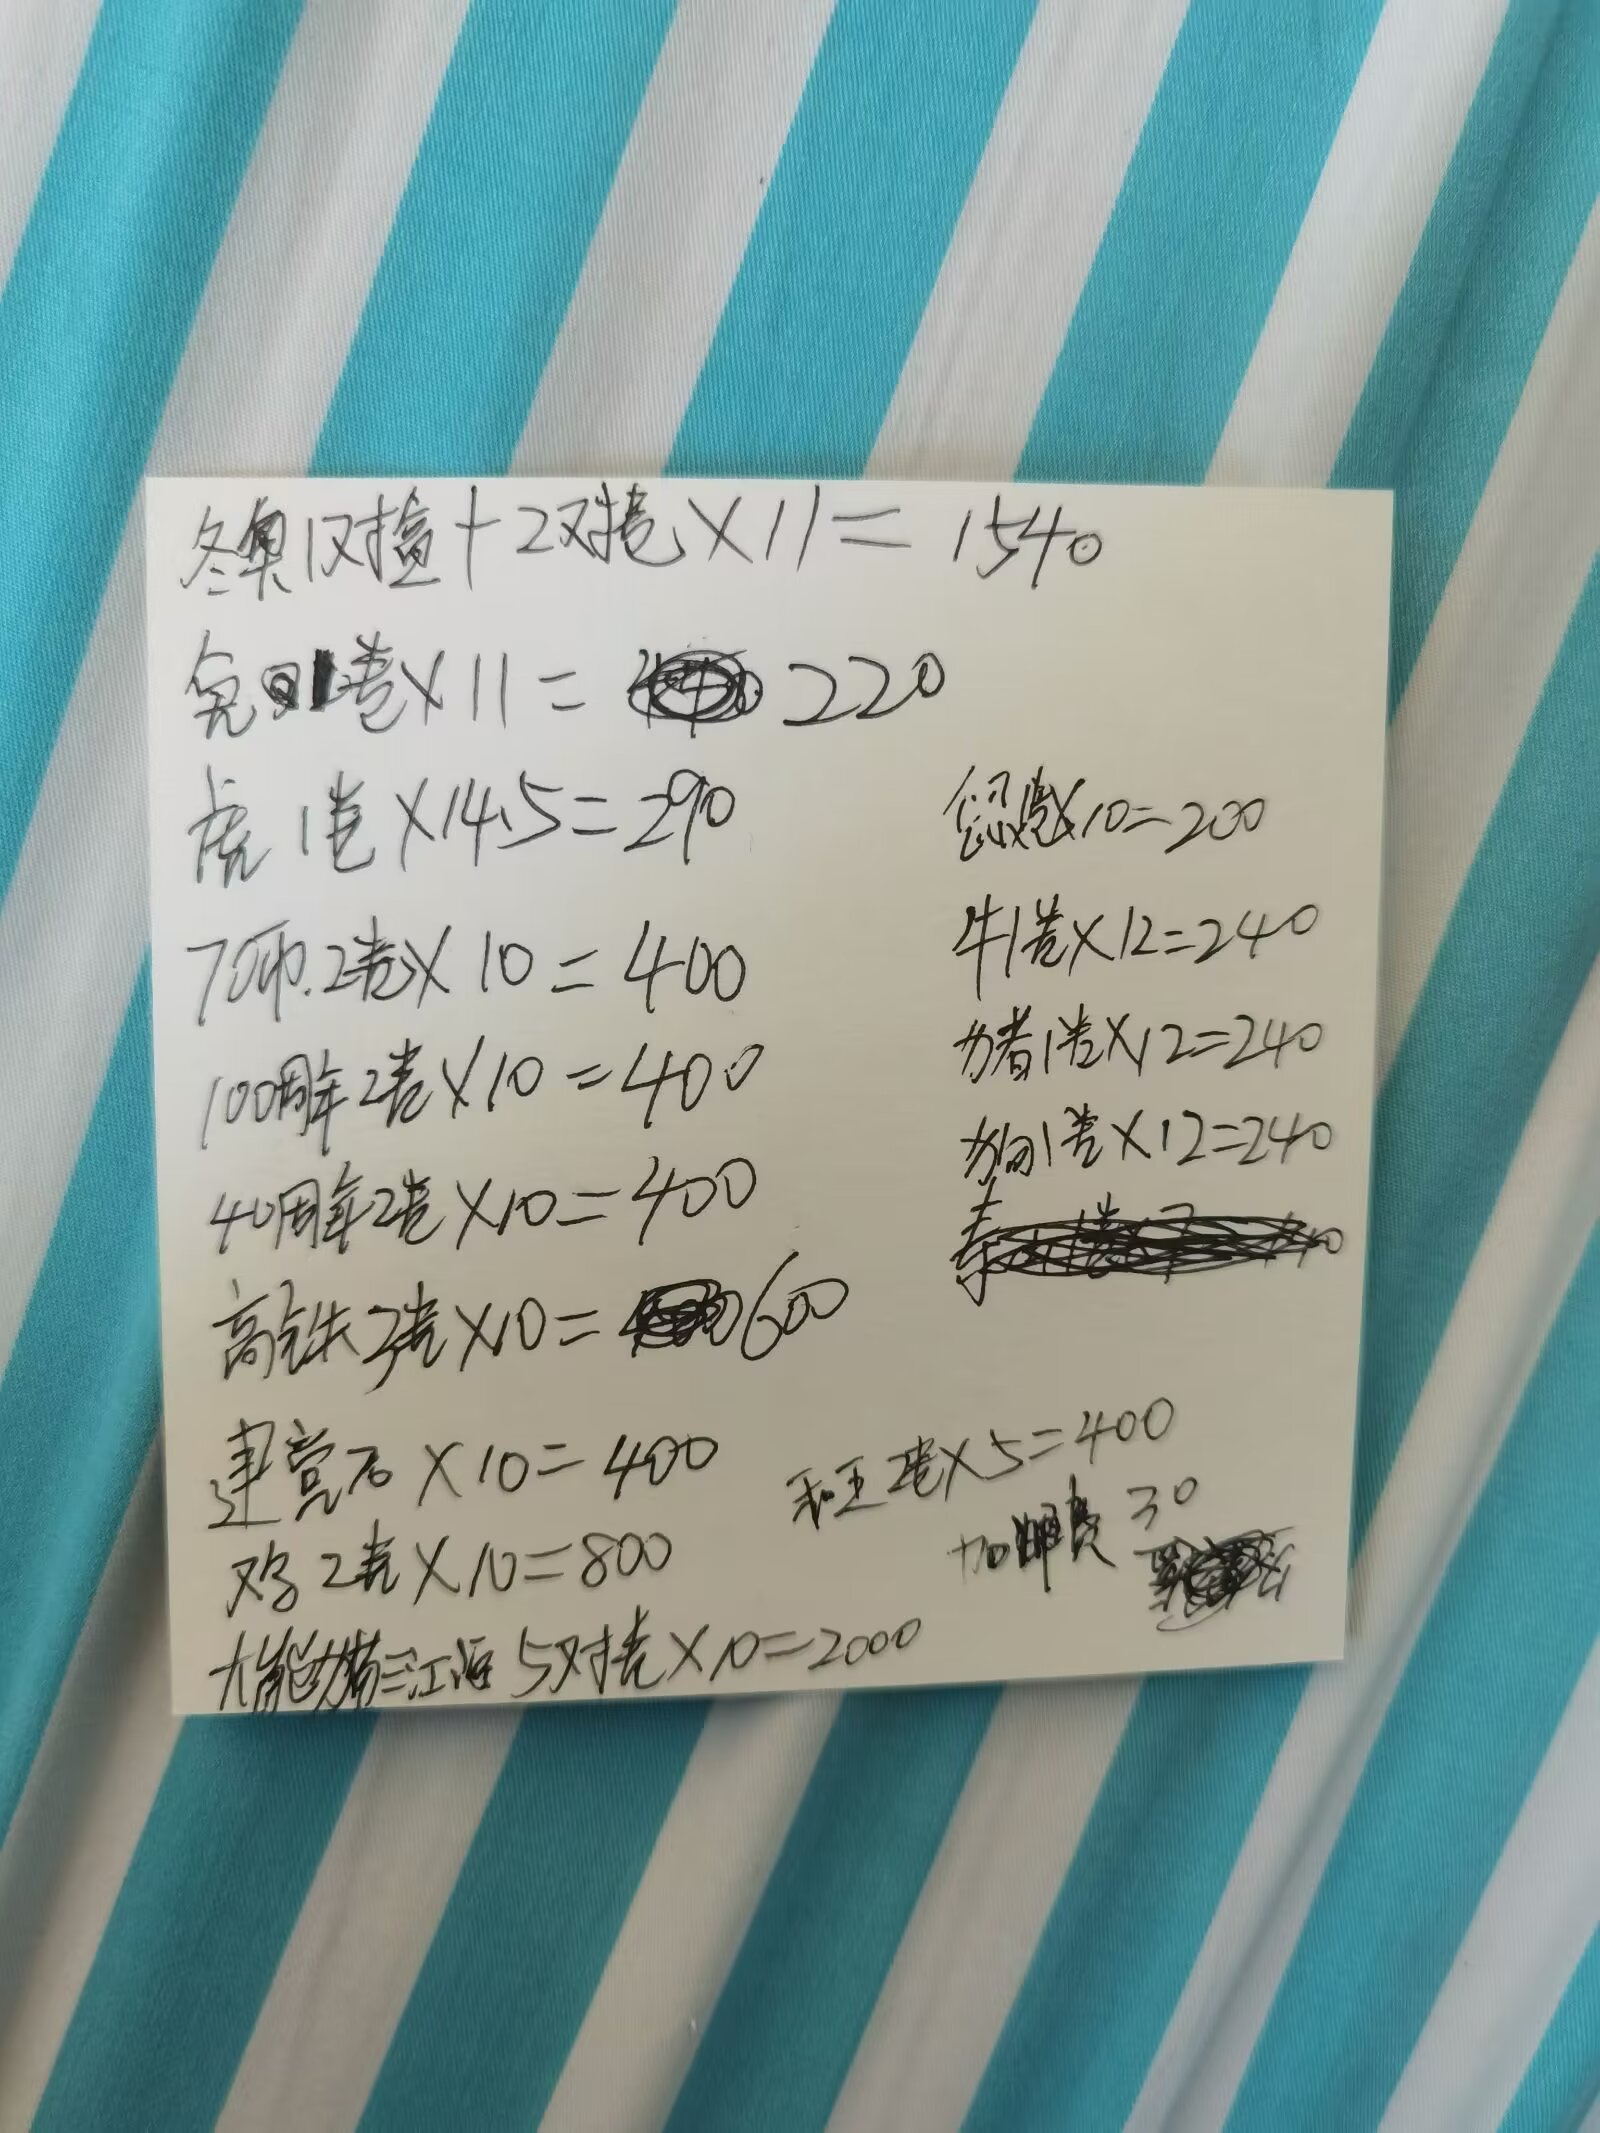 冬奥1对盒+2对卷×11=1540
兔1卷×11=220
虎1卷×14.5=290
70币.2卷×10=400
100周年2卷×10=400
40周年2卷×10=400
高铁3卷×10=600
建党70×10=400
鸡2卷×10=800
大熊猫三江源5对卷×10=2000
×10=200
牛1卷×12=240
猪1卷×12=240
狗1卷×12=240
和五2卷×5=400
加邮费30